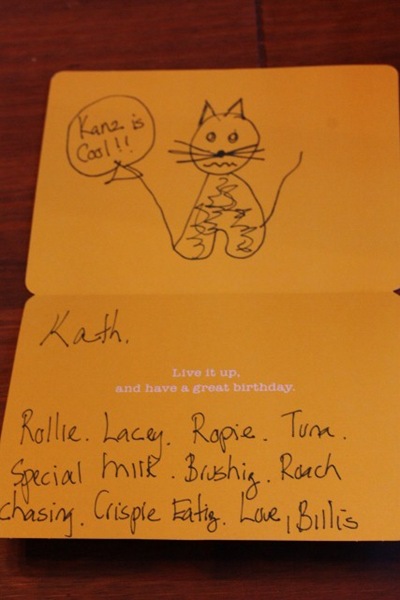 Kanz is
Cool!!
Kath.
Live it up,
and have a great birthday.
Rollie. Lacey. Ropie. Tuna.
Special milk. Brushig. Roach
chasing. Crispie Eatig. Love, Billis